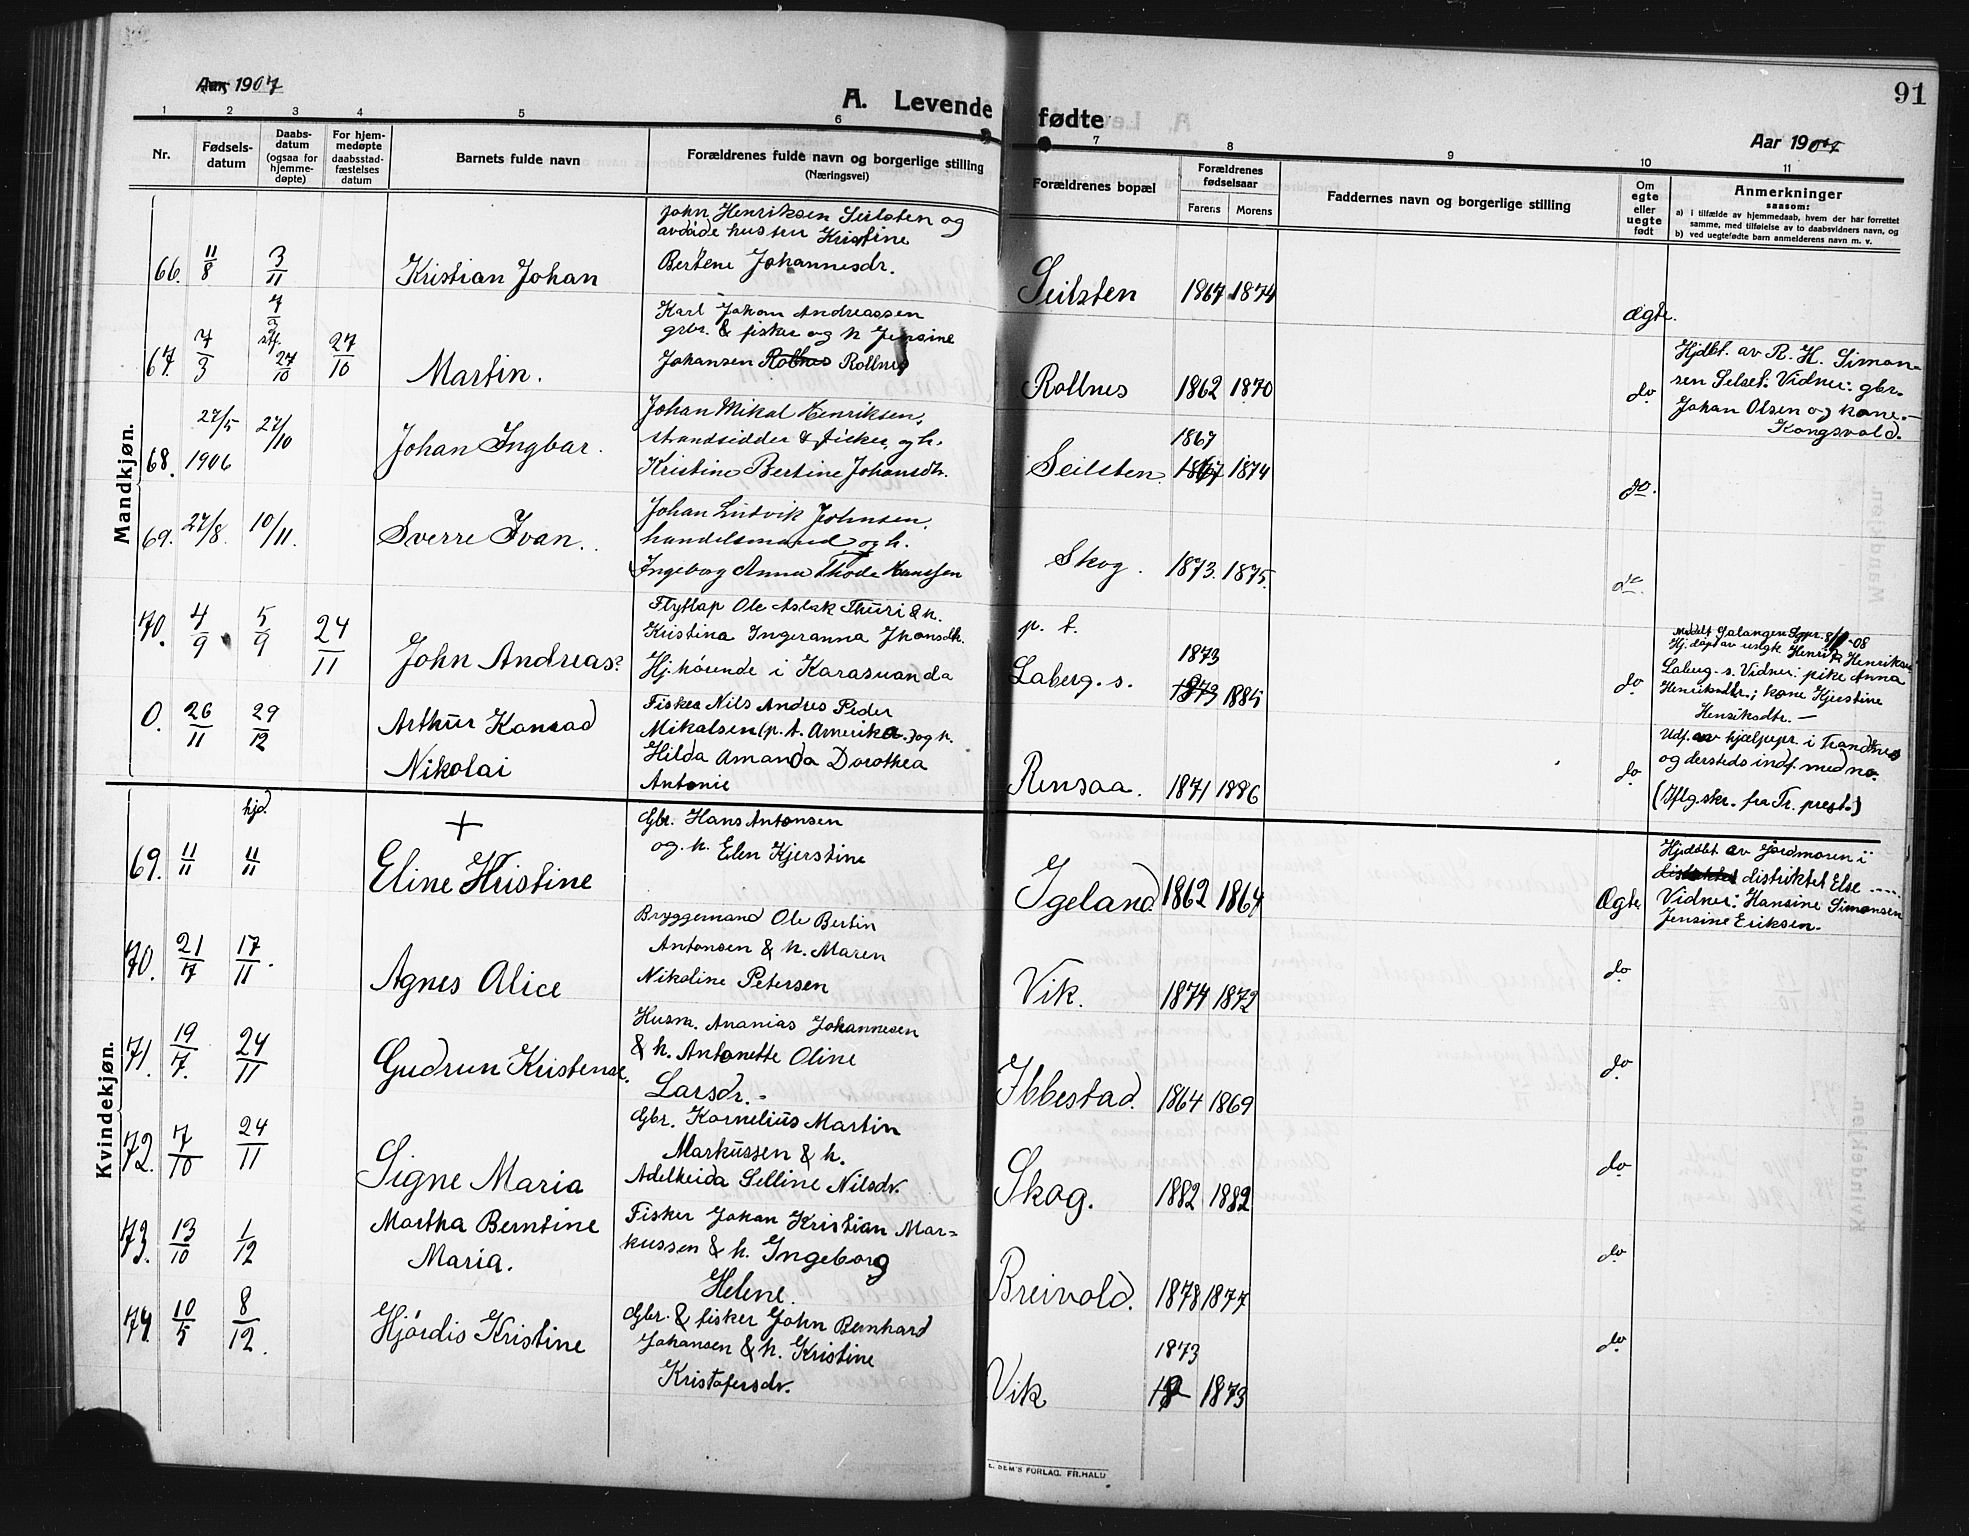 Aar 1907
A. Levende fødte
91
Aar 1907
1 2 3 4 5 6 7 8 9 10 11
Nr.
Fødsels-
datum
Daabs-
datum
(ogsaa for
hjemme-
døpte)
For hjem-
medøpte
daabsstad-
fæstelses
datum
Barnets fulde navn
Forældrenes fulde navn og borgerlige stilling
(Næringsvei)
Forældrenes bopæl
Forældrenes
fødselsaar
Farens Morens
Faddernes navn og borgerlige stilling
Om
egte
eller
uegte
født
Anmerkninger
saasom:
a) i tilfælde av hjemmedaab, hvem der har forrettet
samme, med tilføielse av to daabsvidners navn, og
b) ved uegtefødte barn anmelderens navn m. v.
Mandkjøn.
66. 11/8 3/11 Kristian Johan
John Henriksen Seilsten og
avdøde hustru Kristine
Bertene Johannesdr.
Seilsten 1867 1874 Ægte.
67. 7/3 7/3 stf. 27/10 27/10 Martin.
Karl Johan Andreassen
grbr. & fisker og h Jensine
Johansen Rollnes Rollnes
Rollnes 1862 1870 do
Hjdbt. av R. H. Simon-
sen Selset. Vidner: gbr.
Johan Olsen og kone. -
Kongsvold.
68. 27/5 1906 27/10 Johan Ingvar.
Johan Mikal Henriksen,
strandsidder & fisker, og h.
Kristine Bertine Johansdtr.
Seilsten. 1867 1867 1874 do.
69. 27/8. 10/11. Sverre Ivan.
Johan Ludvik Johnsen,
handelsmand og h.
Ingebog Anna Thode Hanssen
Skog. 1873. 1875. do.
70. 4/9 5/9 24/11 John Andreas?
Flytlap Ole Aslak Thuri & h.
Kristina Ingeranna Jhonsdtr.
Hj.hørende i Karasuanda
p. t.
Laberg. s. 1873 1873 1885 do
Meddelt Salangen Sgpr. 8/11-08
Hj. døpt av uslgte Henrik Henriksen
Laberg. s. Vidner: pike Anna
Henriksdtr.; kone Kjerstine
Henriksdtr. -
0. 26/11 29/12 Arthur Konrad
Nikolai
Fisker Nils Andres Peder
Mikalsen (p. t. Amerika.) og h.
Hilda Amanda Dorothea
Antonie
Rensaa. 1871 1886 do
Udf. av hjælpepr. i Trandenes
og dersteds indf. med no.
(Iflg. skr. fra Tr. prest.)
Kvindekjøn.
69. 11/11 hjd. 11/11 + Eline Kristine
Gbr. Hans Antonsen
og. h. Elen Kjerstine
Igeland. 1862 1864 Ægte
Hjddbt av jordmoren i
distriktet distriktet Else .....
Vidner: Hansine Simonsen
Jensine Eriksen.
70. 21/7 17/11. Agnes Alice
Bryggemand Ole Bertin
Antonsen & h. Maren
Nikoline Petersen
Vik. 1874 1872 do
71. 19/7. 24/11 Gudrun Kristense.
Husm. Ananias Johannesen
& h. Antonette Oline
Larsdr. -
Ibbestad. 1864 1869 do
72. 7/10 24/11 Signe Maria
Gbr. Kornelius Martin
Markussen & h.
Adelheida Selline Nilsdr.
Skog. 1882 1882 do
73. 13/10 1/12 Martha Berntine
Maria.
Fisker Johan Kristian Mar-
kussen & h. Ingeborg
Helene.
Breivold. 1878 1877 do
74. 10/5 8/12. Hjørdis Kristine
Gbr. & fisker John Bernhard
Johansen & h. Kristine
Kristofersdr.
Vik 1873 1873 do
E. SEM'S FORLAG, FR.HALD